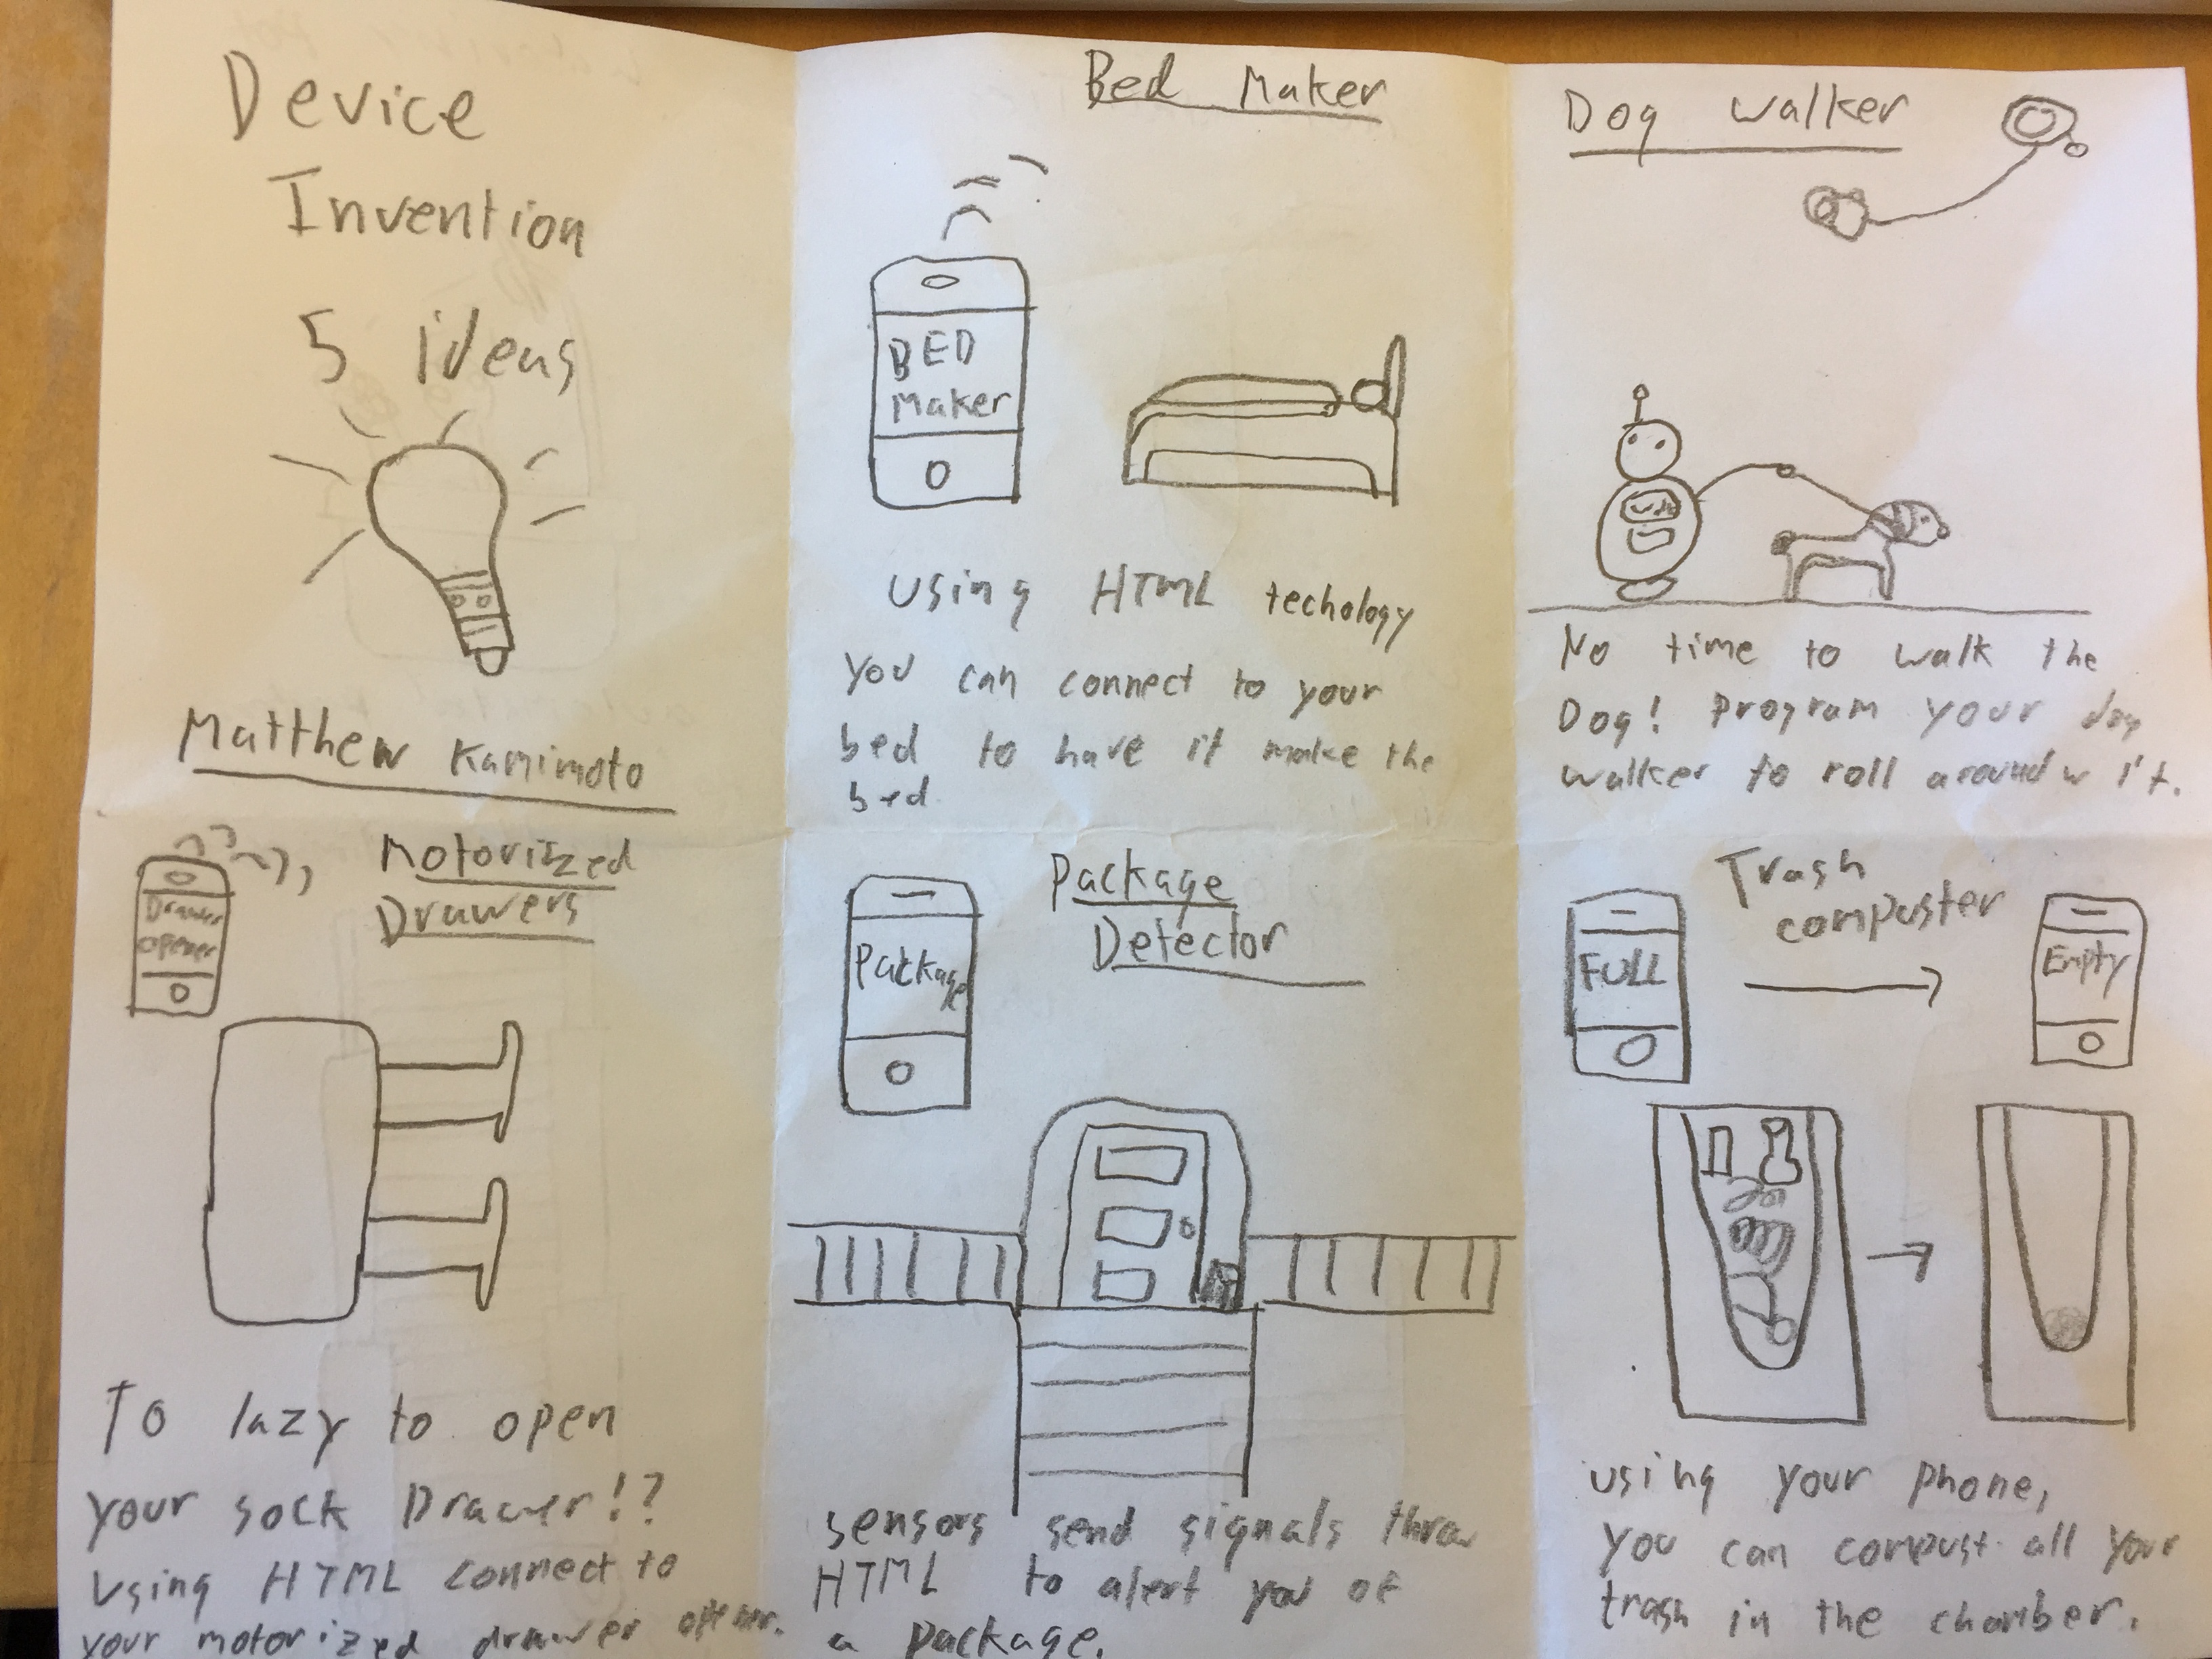 Device
Invention
5 ideas
Matthew Kamimoto
Bed Maker
BED
Maker
Using HTML techology
you can connect to your
bed to have it make the
bed.
Dog walker
No time to walk the
Dog! Program your dog
walker to roll around w it.
Motorized
Drawers
Drawer
opener
To lazy to open
your sock Drawer!?
Using HTML connect to
your motorized drawer opener.
Package
Detector
Package
sensors send signals threw
HTML to alert you of
a package.
Trash
compuster
FULL
Empty
using your phone,
you can compust all your
trash in the chamber.